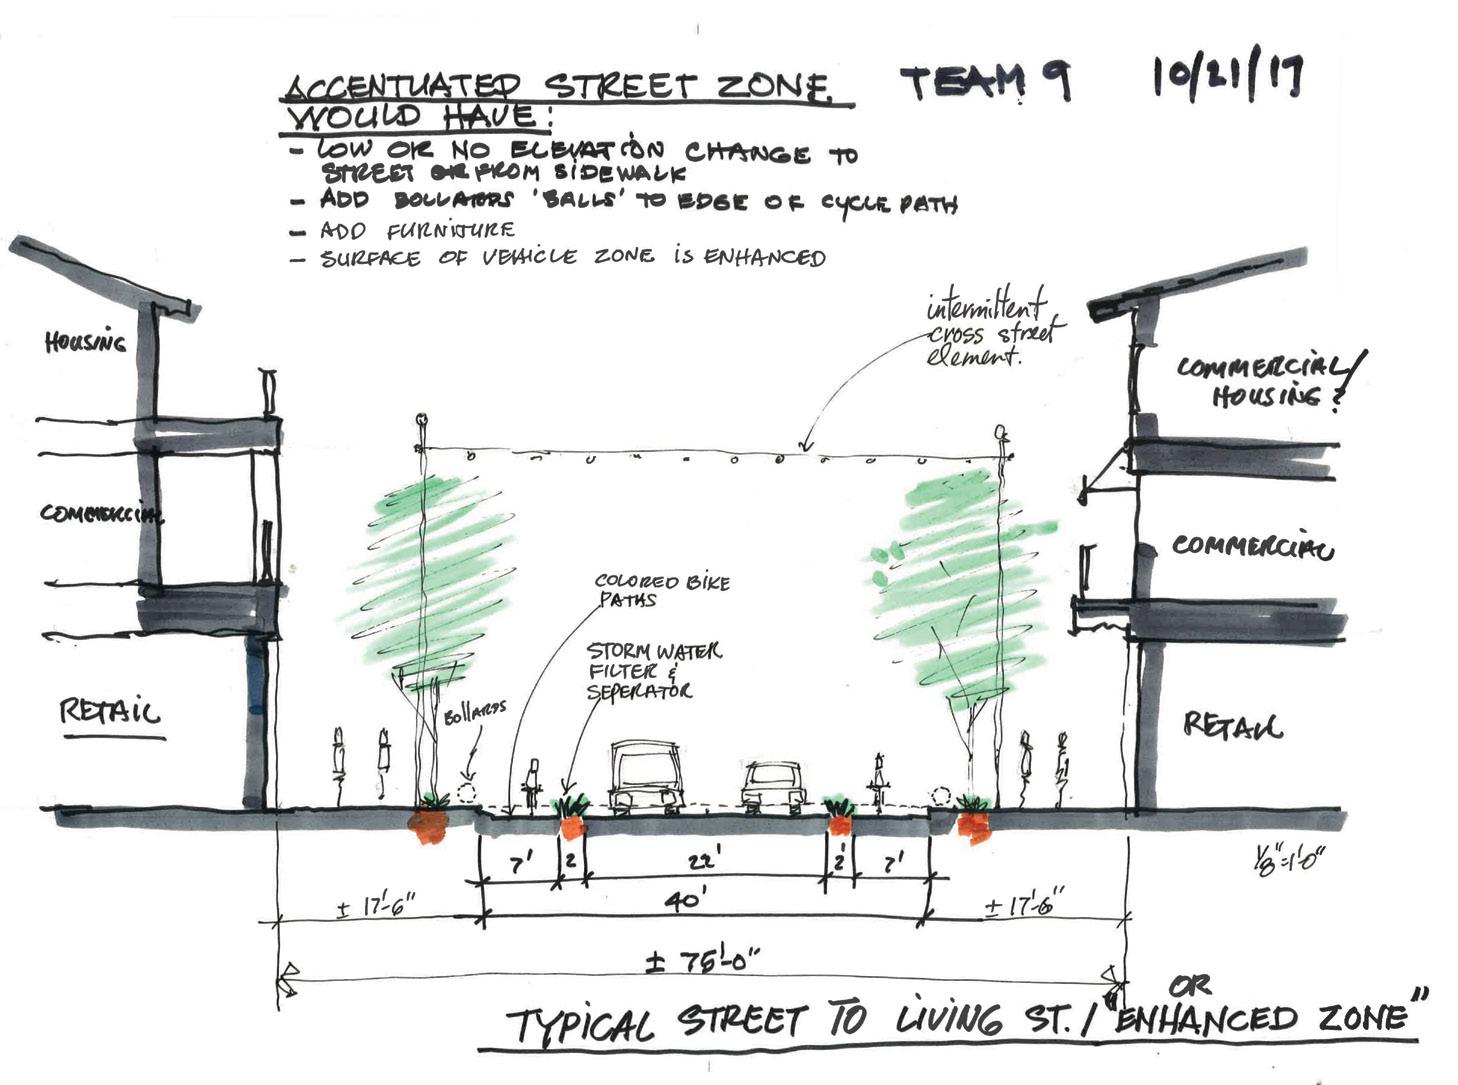 ACCENTUATED STREET ZONE
WOULD HAVE:
- LOW OR NO ELEVATION CHANGE TO
STREET OR FROM SIDEWALK
- ADD BOLLARDS 'BALLS' TO EDGE OF CYCLE PATH
- ADD FURNITURE
- SURFACE OF VEHICLE ZONE IS ENHANCED
TEAM 9
10/21/17
intermittent
cross street
element.
HOUSING
COMMERCIAL
RETAIL
COMMERCIAL/
HOUSING?
COMMERCIAL
RETAIL
COLORED BIKE
PATHS
STORM WATER
FILTER &
SEPERATOR
BOLLARDS
7'
2
22'
2'
7'
1/8"=1'0"
± 17'-6"
40'
± 17'-6"
± 75'-0"
OR
TYPICAL STREET TO LIVING ST. / "ENHANCED ZONE"